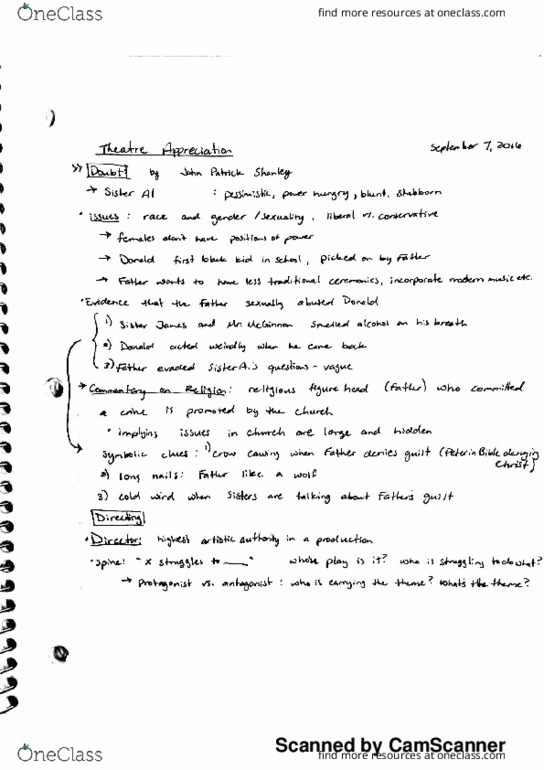 OneClass
find more resources at oneclass.com
Theatre Appreciation
September 7, 2016
Doubt by John Patrick Shanley
→ Sister Al : pessimistic, power hungry, blunt, stubborn
• issues : race and gender/sexuality, liberal vs. conservative
→ females don't have positions of power
→ Donald first black kid in school, picked on by Father
→ Father wants to have less traditional ceremonies, incorporate modern music etc.
• Evidence that the Father sexually abused Donald
1) Sister James and Mr. McGinnan smelled alcohol on his breath
2) Donald acted weirdly when he came back
3) Father evaded Sister A.'s questions - vague
→ Commentary on Religion: religious figure head (Father) who committed
a crime is promoted by the church
• implying issues in church are large and hidden
Symbolic clues : 1) crow cawing when Father denies guilt (Peter in Bible denying Christ)
2) long nails: Father like a wolf
3) cold wind when Sisters are talking about Father's guilt
Directing
• Director: highest artistic authority in a production
• Spine: "x struggles to ___" whose play is it? who is struggling to do what?
→ Protagonist vs. antagonist : who is carrying the theme? What's the theme?
Scanned by CamScanner
OneClass
find more resources at oneclass.com